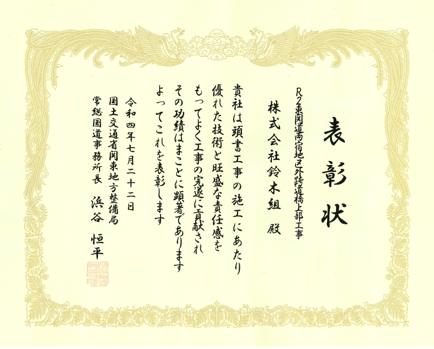 表彰状
R2東関道両宿地区外跨道橋上部工事
株式会社鈴木組 殿
貴社は頭書工事の施工にあたり
優れた技術と旺盛な責任感を
もってよく工事の完遂に貢献され
その功績はまことに顕著であります
よってこれを表彰します
令和四年七月二十二日
国土交通省関東地方整備局
常総国道事務所長 浜谷 恒平